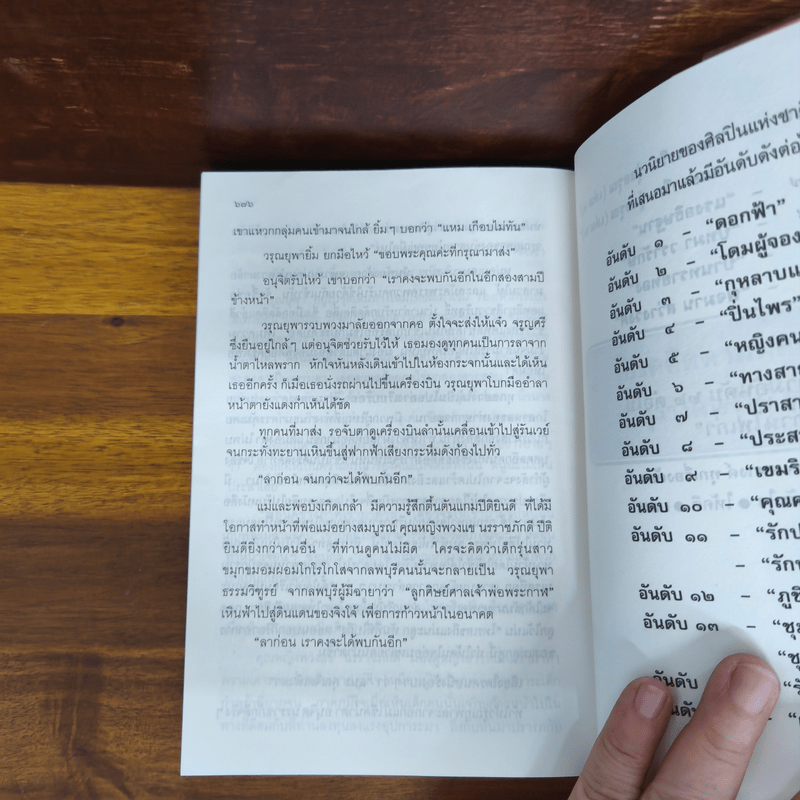 ๖๒๖
เขาแหวกกลุ่มคนเข้ามาจนใกล้ ยิ้มๆ บอกว่า “แหม เกือบไม่ทัน”
วรุณยุพายิ้ม ยกมือไหว้ “ขอบพระคุณค่ะที่กรุณามาส่ง”
อนุจิตรับไหว้ เขาบอกว่า “เราคงจะพบกันอีกในอีกสองสามปี
ข้างหน้า”
วรุณยุพารวบพวงมาลัยออกจากคอ ตั้งใจจะส่งให้แจ๋ว จรูญศรี
ซึ่งยืนอยู่ใกล้ๆ แต่อนุจิตช่วยรับไว้ให้ เธอมองดูทุกคนเป็นการลาจาก
น้ำตาไหลพราก หักใจหันหลังเดินเข้าไปในห้องกระจกนั้นและได้เห็น
เธออีกครั้ง ก็เมื่อเธอนั่งรถผ่านไปขึ้นเครื่องบิน วรุณยุพาโบกมืออำลา
หน้าตายังแดงก่ำเห็นได้ชัด
ทุกคนที่มาส่ง รอจับตาดูเครื่องบินลำนั้นเคลื่อนเข้าไปสู่รันเวย์
จนกระทั่งทะยานเหินขึ้นสู่ฟากฟ้าเสียงกระหึ่มดังก้องไปทั่ว
“ลาก่อน จนกว่าจะได้พบกันอีก”
แม่และพ่อบังเกิดเกล้า มีความรู้สึกตื้นตันแกมปีติยินดี ที่ได้มี
โอกาสทำหน้าที่พ่อแม่อย่างสมบูรณ์ คุณหญิงพวงแข นรราชภักดี ปีติ
ยินดียิ่งกว่าคนอื่น ที่ท่านดูคนไม่ผิด ใครจะคิดว่าเด็กรุ่นสาว
ขมุกขมอมผอมโกโรโกโสจากลพบุรีคนนั้นจะกลายเป็น วรุณยุพา
ธรรมวิฑูรย์ จากลพบุรีผู้มีฉายาว่า “ลูกศิษย์ศาลเจ้าพ่อพระกาฬ”
เหินฟ้าไปสู่ดินแดนของจิงโจ้ เพื่อการก้าวหน้าในอนาคต
“ลาก่อน เราคงจะได้พบกันอีก”
นวนิยายของศิลปินแห่งชา
ที่เสนอมาแล้วมีอันดับดังต่อ
อันดับ ๑ – “ดอกฟ้า”
อันดับ ๒ – “โดมผู้จอง
อันดับ ๓ – “กุหลาบแ
อันดับ ๔ – “ปิ่นไพร”
อันดับ ๕ – “หญิงคน
อันดับ ๖ – “ทางสาย
อันดับ ๗ – “ปราสา
อันดับ ๘ – “ประส
อันดับ ๙ – “เขมริ
อันดับ ๑๐ – “คุณค
อันดับ ๑๑ – “รักป
– “รัก
อันดับ ๑๒ – “ภูชิ
อันดับ ๑๓ – “ชุม
“ชุ
อันดับ
อันดับ